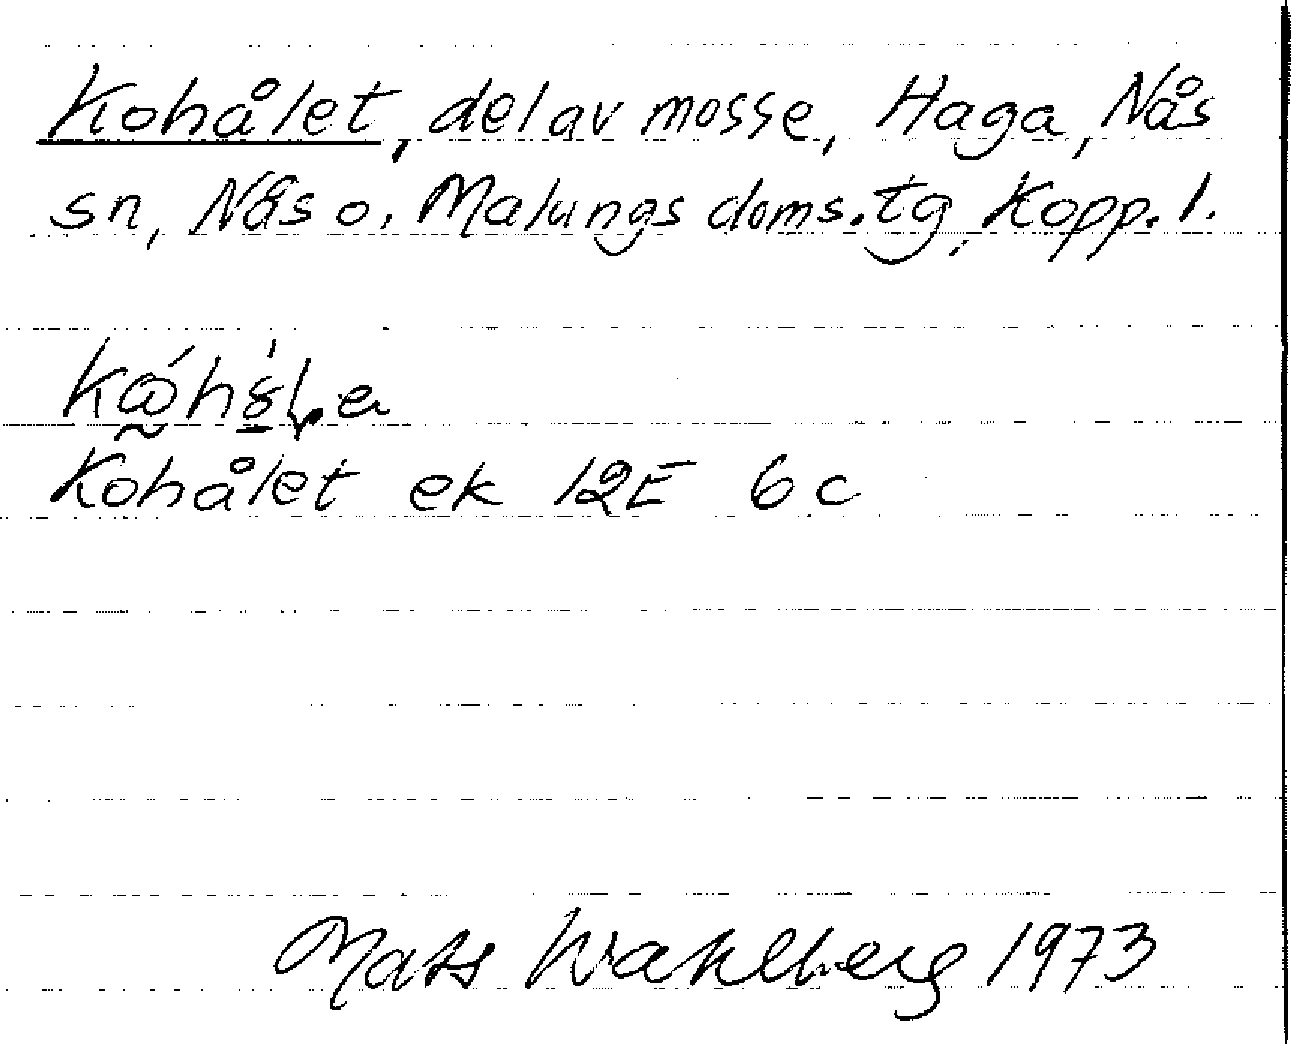 Kohålet, del av mosse, Haga, Nås
sn, Nås o. Malungs doms.tg, Kopp. l.
Kohålet ek 12E 6c
Mats Wahlberg 1973